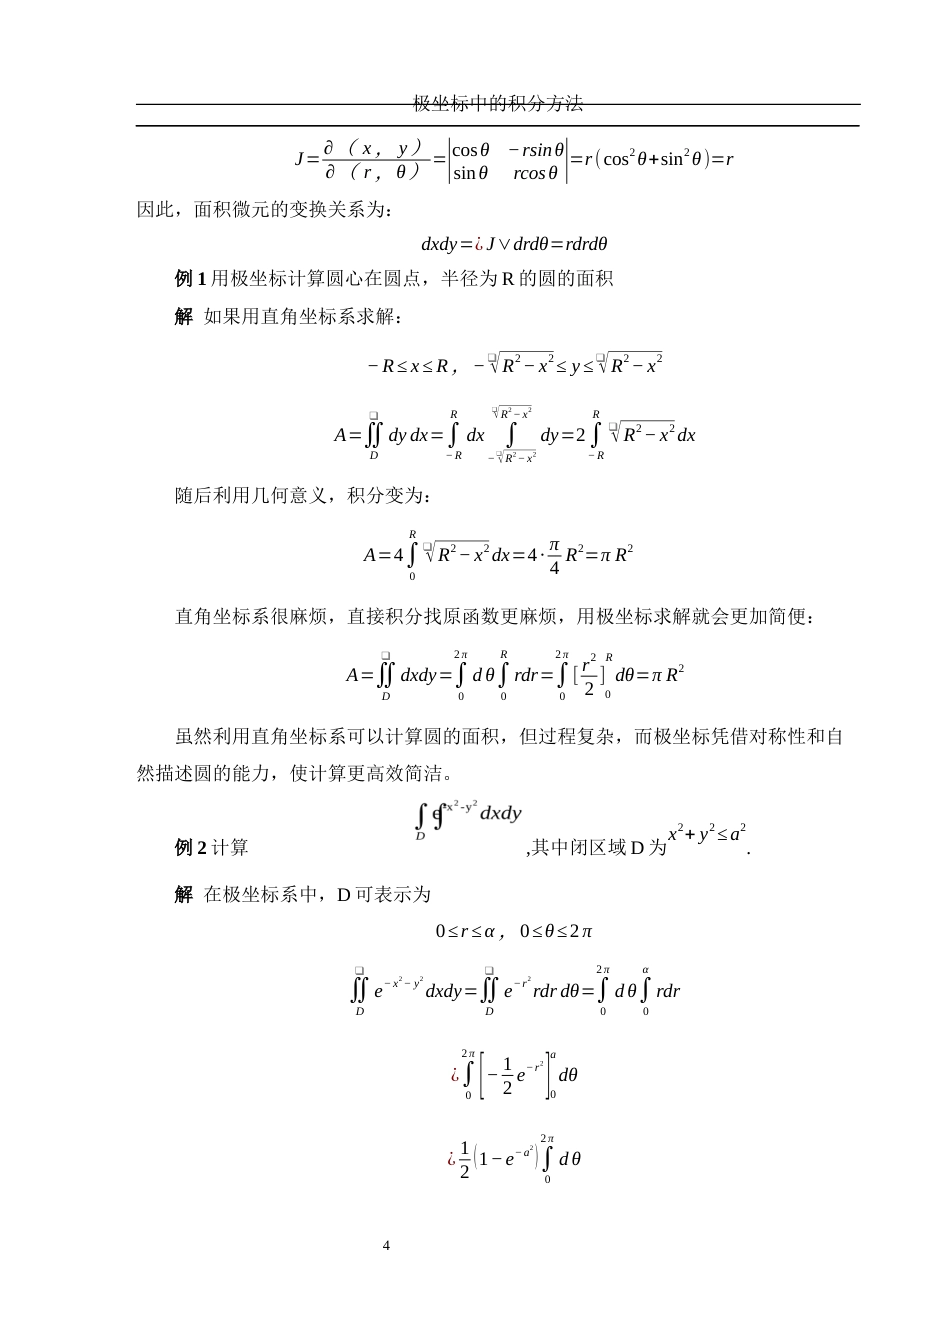 极坐标中的积分方法
J=∂（x，y）/∂（r，θ）=|cosθ −rsinθ; sinθ rcosθ|=r(cos²θ+sin²θ)=r
因此，面积微元的变换关系为：
dxdy=¿J∨drdθ=rdrdθ
例 1 用极坐标计算圆心在圆点，半径为 R 的圆的面积
解 如果用直角坐标系求解：
−R≤x≤R，−√(R²−x²)≤y≤√(R²−x²)
A=∬_D dy dx=∫_{−R}^{R} dx ∫_{−√(R²−x²)}^{√(R²−x²)} dy=2∫_{−R}^{R} √(R²−x²) dx
随后利用几何意义，积分变为：
A=4∫_0^R √(R²−x²) dx=4·π/4 R²=πR²
直角坐标系很麻烦，直接积分找原函数更麻烦，用极坐标求解就会更加简便：
A=∬_D dxdy=∫_0^{2π} dθ∫_0^R rdr=∫_0^{2π} [r²/2]_0^R dθ=πR²
虽然利用直角坐标系可以计算圆的面积，但过程复杂，而极坐标凭借对称性和自
然描述圆的能力，使计算更高效简洁。
例 2 计算 ∫∫_D e^{-x²-y²} dxdy ,其中闭区域 D 为 x²+y²≤a².
解 在极坐标系中，D 可表示为
0≤r≤α，0≤θ≤2π
∬_D e^{−x²−y²} dxdy=∬_D e^{−r²} rdr dθ=∫_0^{2π} dθ∫_0^α rdr
¿∫_0^{2π} [−1/2 e^{−r²}]_0^a dθ
¿1/2(1−e^{−a²})∫_0^{2π} dθ
4